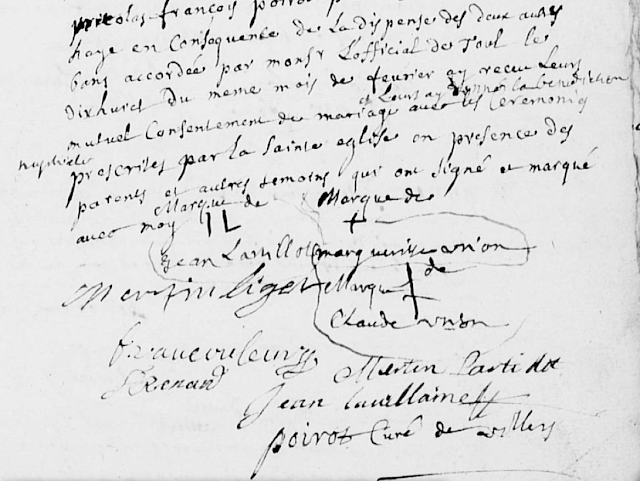 nicolas françois poirot
haye en Consequence de La dispense des deux autres
bans accordée par monsr L'official de Toul le
dixhuict du meme mois de fevrier ay receu Leurs
mutuel Consentement de mariage et Leurs ay donné la benediction
nuptiale avec les Ceremonies
proscrites par la sainte eglise en presence des
parents et autres temoins qui ont signé et marqué
avec moy Marque de Marque de
IL +
jean Lartillot margueritte union
Martin liget Marque de
Claude union
Renard Martin Lartilot
jean
poirot Curé de villers